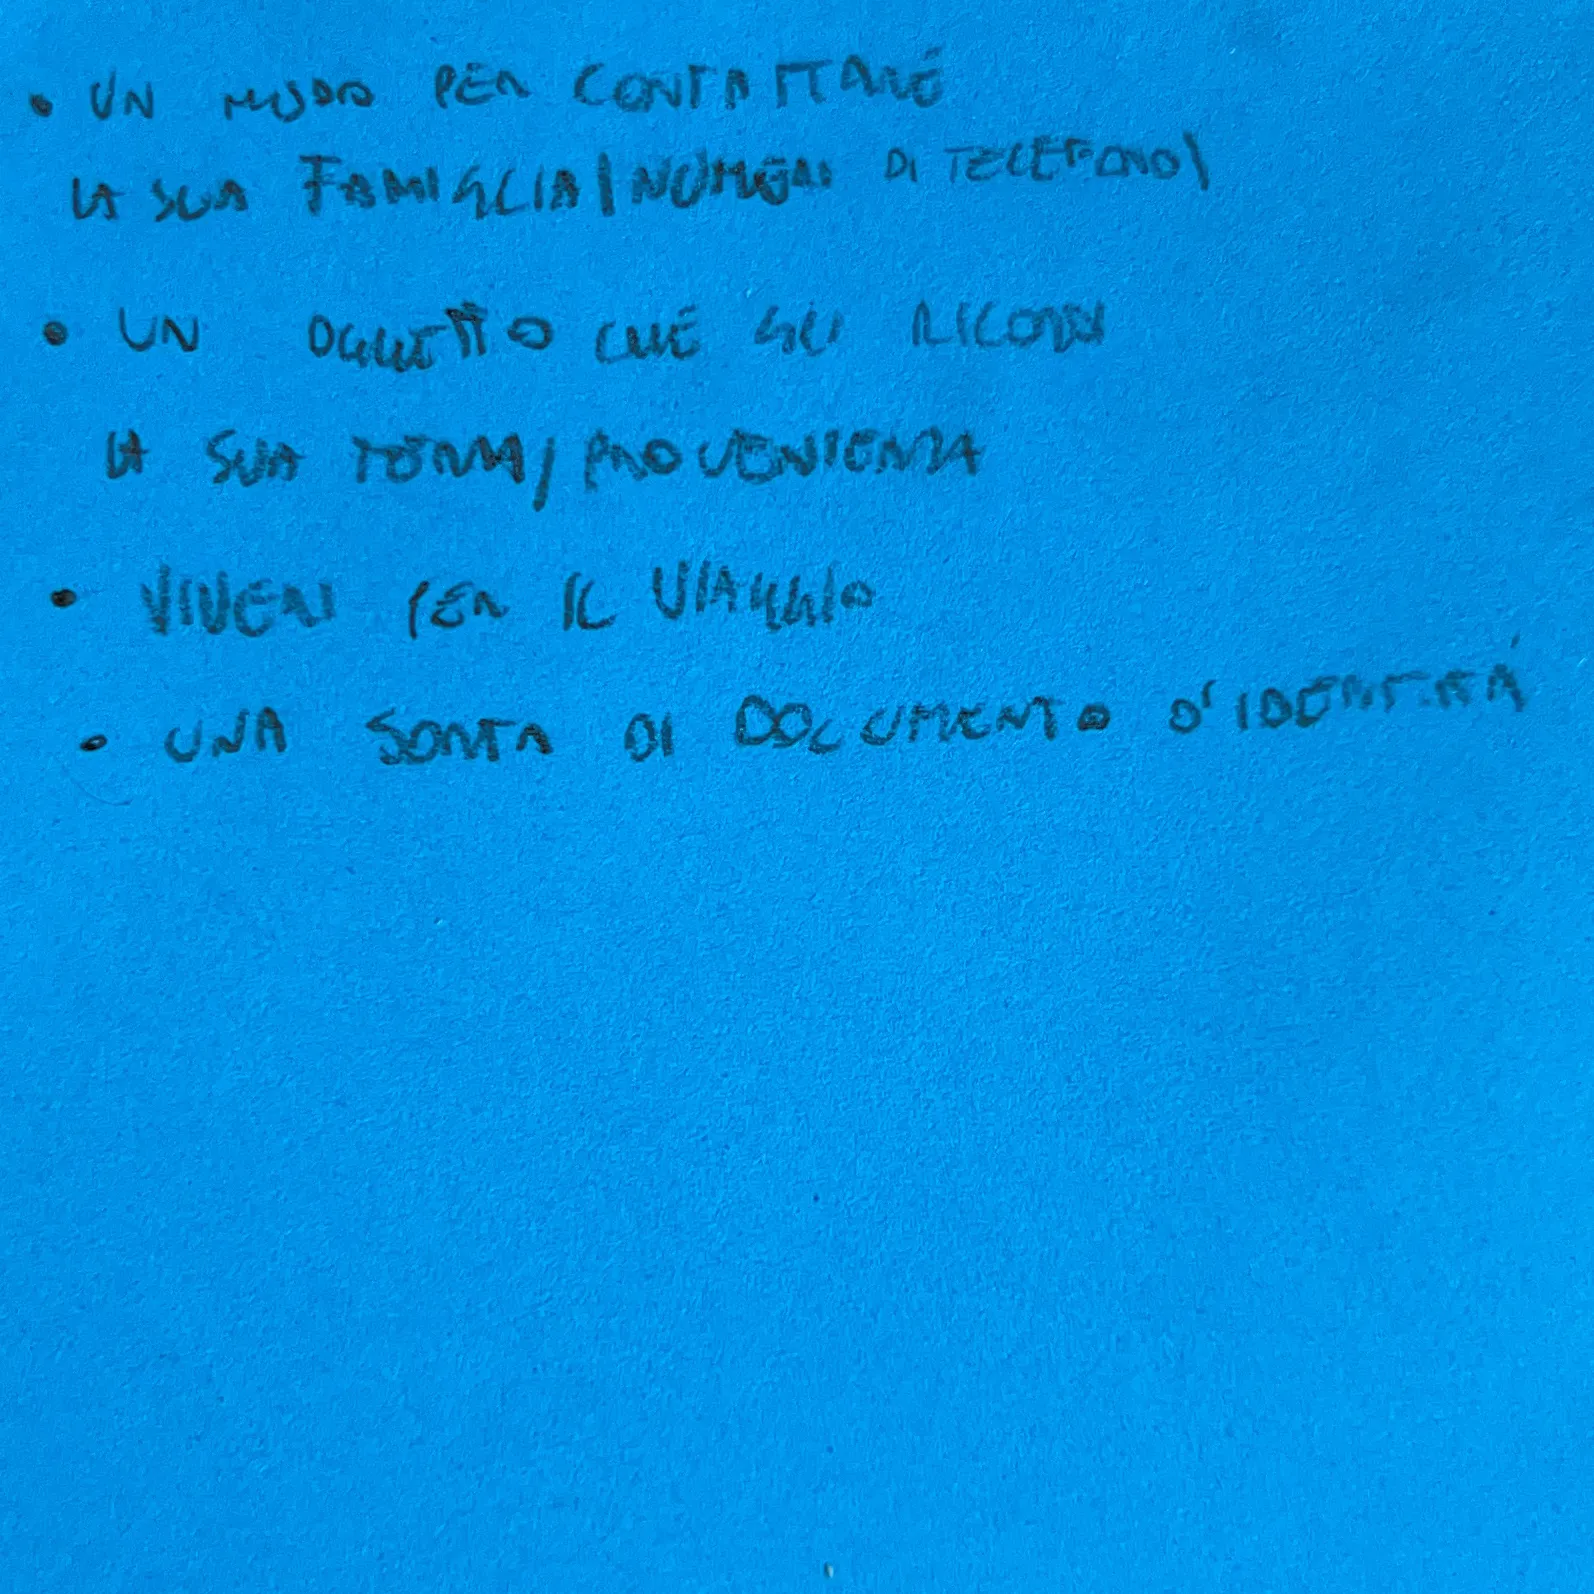 • UN MODO PER CONTATTARE
LA SUA FAMIGLIA|NUMERI DI TELEFONO|
• UN OGGETTO CHE GLI RICORDI
LA SUA TERRA/PROVENIENZA
• VIVERI PER IL VIAGGIO
• UNA SORTA DI DOCUMENTO D'IDENTITÀ